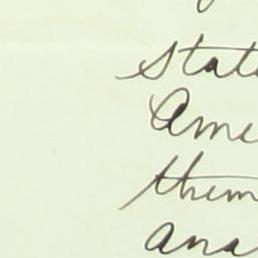 stat
Ame
them
ana